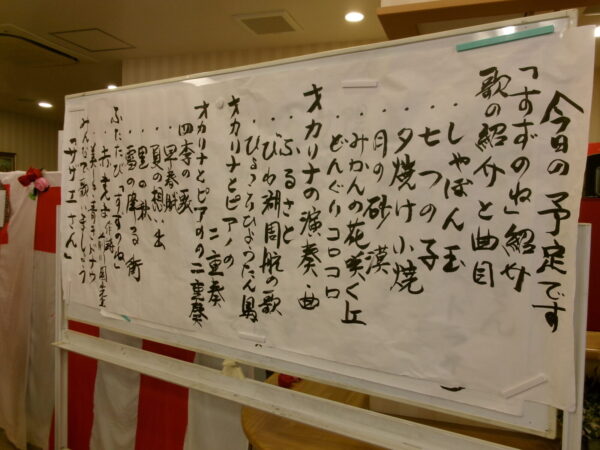 今日の予定です
「すずのね」紹介
歌の紹介と曲目
・しゃぼん玉
・七つの子
・夕焼け小焼
・月の砂漠
・みかんの花咲く丘
・どんぐりコロコロ
オカリナの演奏・曲
・ふるさと
・びわ湖周航の歌
・ひょっこりひょうたん島
オカリナとピアノの二重奏
オカリナとピアノの二重奏
四季の歌
・早春賦
・夏の想い出
・里の秋
・雪の降る街
ふたたび「すずのね」
・赤とんぼ
・美しき青きドナウ
みんなで歌いましょう
「サザエさん」